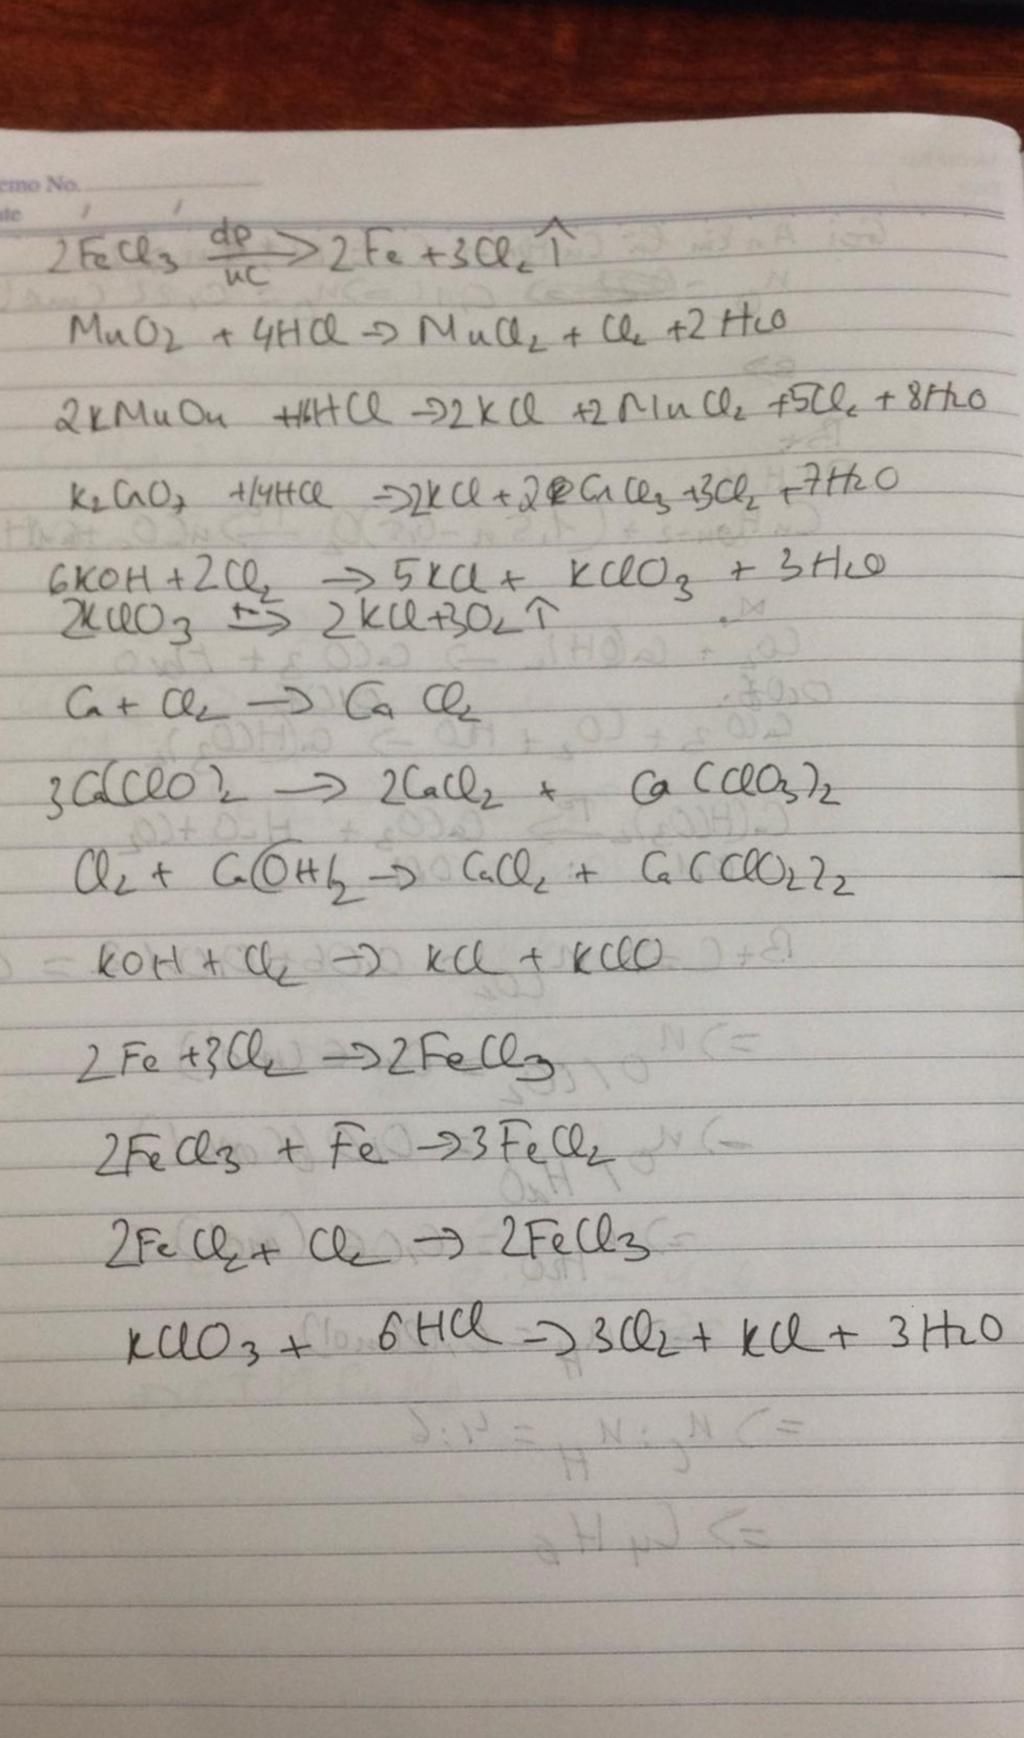 emo No.
te
2FeCl₃ đp/nc → 2Fe + 3Cl₂ ↑
MnO₂ + 4HCl → MnCl₂ + Cl₂ + 2H₂O
2KMnO₄ + 16HCl → 2KCl + 2MnCl₂ + 5Cl₂ + 8H₂O
K₂CrO₇ + 14HCl → 2KCl + 2CrCl₃ + 3Cl₂ + 7H₂O
6KOH + 2Cl₂ → 5KCl + KClO₃ + 3H₂O
2KClO₃ t° → 2KCl + 3O₂ ↑
Ca + Cl₂ → CaCl₂
3Ca(ClO)₂ → 2CaCl₂ + Ca(ClO₃)₂
Cl₂ + Ca(OH)₂ → CaCl₂ + Ca(ClO₂)₂
KOH + Cl₂ → KCl + KClO
2Fe + 3Cl₂ → 2FeCl₃
2FeCl₃ + Fe → 3FeCl₂
2FeCl₂ + Cl₂ → 2FeCl₃
KClO₃ + 6HCl → 3Cl₂ + KCl + 3H₂O